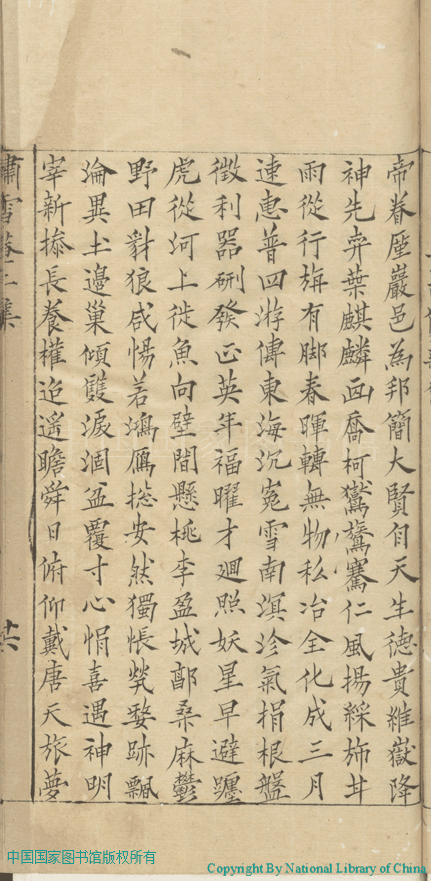 帝眷廑巖邑為邦簡大賢自天生德貴維嶽降
神先弈葉麒麟画喬柯鸑鷟騫仁風揚綵斾甘
雨從行旃有脚春暉轉無物私冶全化成三月
速惠普四游傳東海沉寃雪南溟沴氣捐根盤
徵利器硎發正英年福曜才迴照妖星早避躔
虎從河上徙魚向壁間懸桃李盈城鄙桑麻鬱
野田豺狼咸惕若鴻鴈揔安然獨悵煢嫠跡飄
淪異土邊巢傾雙淚涸盆覆寸心悁喜遇神明
宰新操長養權迢遥瞻舜日俯仰戴唐天旅夢
十六
中国国家图书馆版权所有
Copyright By National Library of China